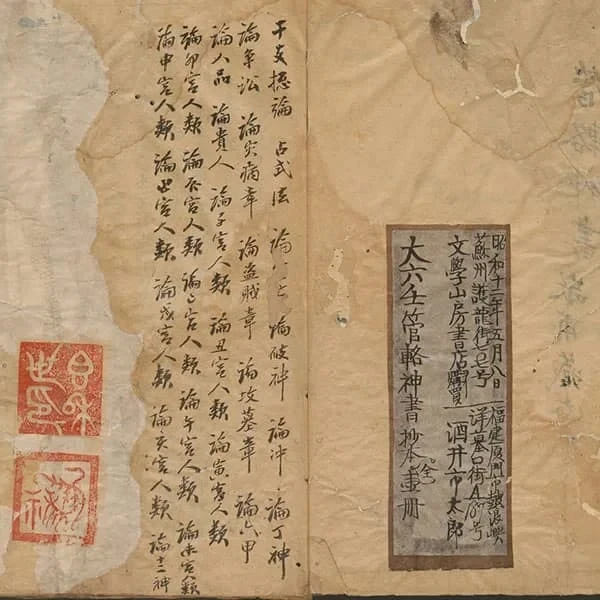 昭和十二年五月八日
福建廈門市鼓浪嶼
蘇州護龍街号
洋墓口街A号
文學山房書店購買
酒井市太郎
大六壬管輅神書抄本 全 壹册
干支總論 占式法 論 論破碎 論冲 論丁神
論爭訟 論災病章 論盜賊章 論墳墓章 論六甲
論人品 論貴人 論子宮人類 論丑宮人類 論寅宮人類
論卯宮人類 論辰宮人類 論巳宮人類 論午宮人類 論未宮人類
論申宮人類 論酉宮人類 論戌宮人類 論亥宮人類 論十二神